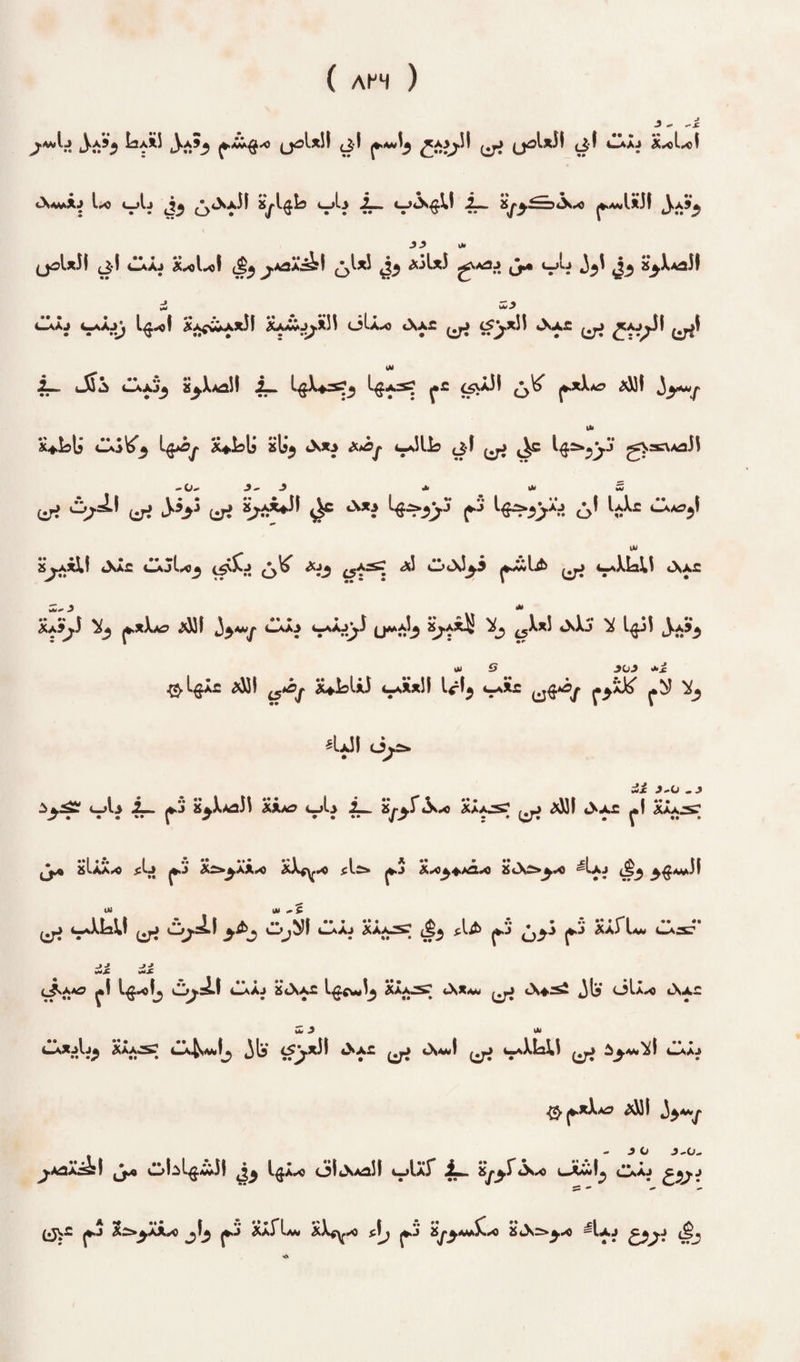 ( ٨٢٦ )
أُمَامَةُ بنت ابي العاص بن الربيع واسم ابي العاص مهشم وقيل لقيط وقيل ياسر
وقيل القاسم مذكورة في المهذب في باب طهارة البدن وفي باب ما يفسد
الصلوة وفي اول باب من يصح لعانه وفي لعان المختصر وهي امامة بنت ابي العاص
ابن الربيع بن عبد العُزَّى بن عبد مناف القريشية العبشمية امها زينب بنت
رسول الله صلعم كان النبي عم يحبها ويحملها في الصلوة وثبت ذلك في
الصحيح تزوّجها علي بن ابي طالب رضه بعد وفاة فاطمة رضها وكانت فاطمة
اوصت عليًّا ان يتزوّجها ثم تزوّجها بعد علي المُغِيرَةُ بن نَوْفَل بن الحرث بن
عبد المطّلب بن هاشم فولدت له يحيى وبه كان يكنى وماتت عند المغيرة
وقيل انها لا تلد لعلي ولا للمغيرة وليس لزينب بنت رسول الله صلعم ولا لرُقَيَّة
ولا لأم كُلْثُوم رضهن عقب وانما العقب لفاطمة رضي الله عنها ۞
حرف الباء
بُحَيْنَةُ أُمّ عبد الله بن بحينة مذكورة في باب صفة الصلوة ثم في باب سجود
السهو وهي بباء موحدة مضمومة ثم حاء مهملة مفتوحة ثم ياء مثناة من
تحت ساكنة ثم نون ثم هاء وهي بحينة بنت الأَرَتّ وهو الحرث بن المطّلب بن
عبد مناف قال محمد بن سعد بحينة واسمها عبدة بنت الحرث وامها أُمّ صيفي
بنت الاسود بن المطّلب بن اسد بن عبد العُزَّى قال واسلمت بحينة وبايعت
رسول الله صلعم ۞
بِرْوَعُ بنت وَاشِق مذكورة في كتاب الصداق منها وفي الشهادات من المختصر
وهي بروع بباء موحدة مكسورة ثم راء مهملة ساكنة ثم واو مفتوحة ثم عين